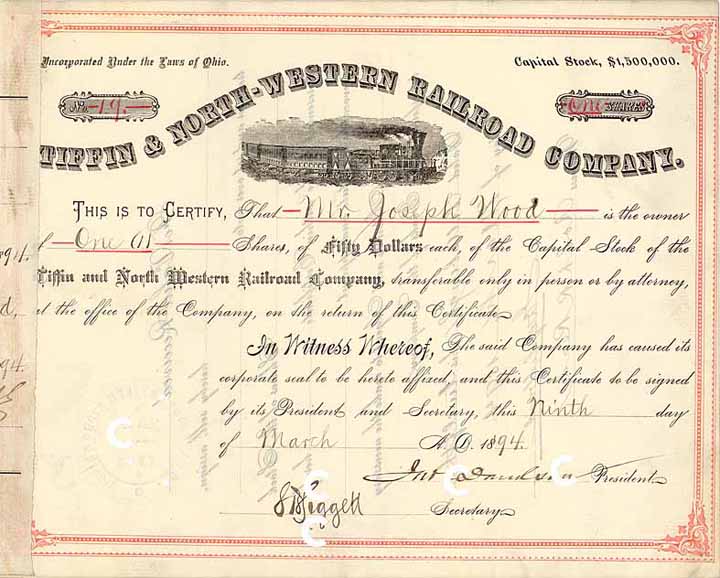 Incorporated Under the Laws of Ohio.
Capital Stock, $1,500,000.
No. 19.
One SHARES
TIFFIN & NORTH-WESTERN RAILROAD COMPANY.
THIS IS TO CERTIFY, That Mr. Joseph Wood is the owner
One (1) Shares, of Fifty Dollars each, of the Capital Stock of the
Tiffin and North Western Railroad Company, transferable only in person or by attorney,
at the office of the Company, on the return of this Certificate
In Witness Whereof, The said Company has caused its
corporate seal to be hereto affixed, and this Certificate to be signed
by its President and Secretary, this Ninth day
of March A. D. 1894.
President
Secretary